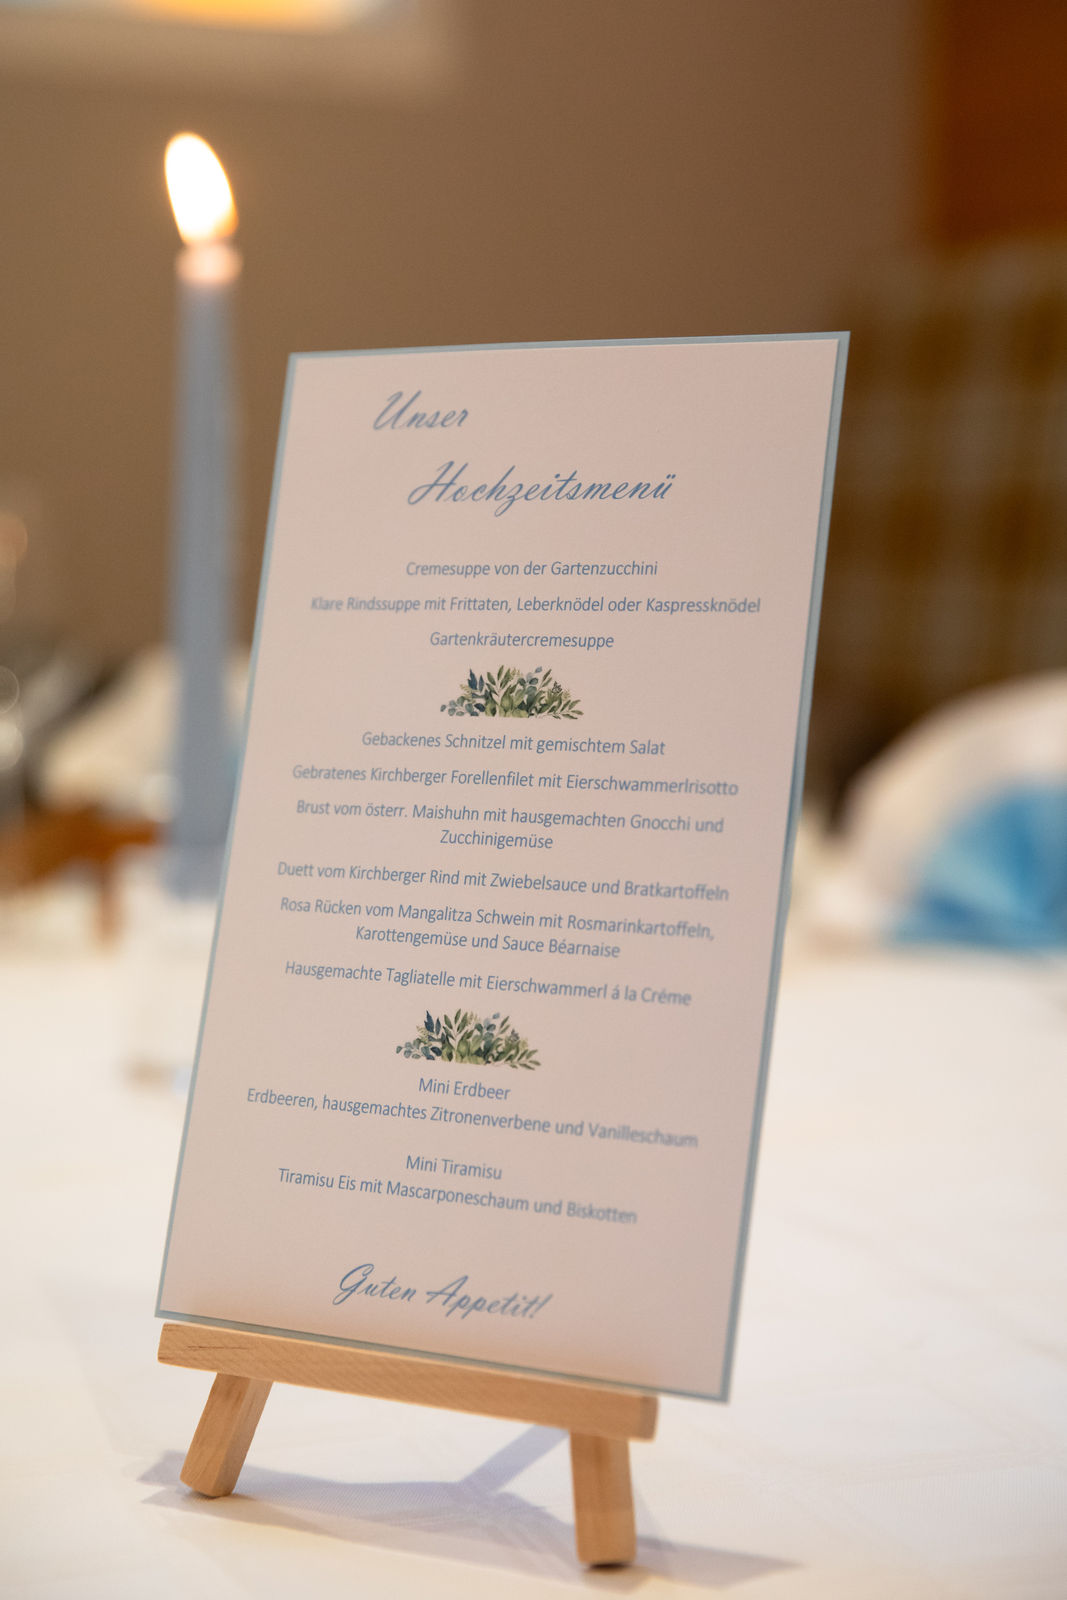 Unser
Hochzeitsmenü
Cremesuppe von der Gartenzucchini
Klare Rindssuppe mit Frittaten, Leberknödel oder Kaspressknödel
Gartenkräutercremesuppe
Gebackenes Schnitzel mit gemischtem Salat
Gebratenes Kirchberger Forellenfilet mit Eierschwammerlrisotto
Brust vom österr. Maishuhn mit hausgemachten Gnocchi und
Zucchinigemüse
Duett vom Kirchberger Rind mit Zwiebelsauce und Bratkartoffeln
Rosa Rücken vom Mangalitza Schwein mit Rosmarinkartoffeln,
Karottengemüse und Sauce Béarnaise
Hausgemachte Tagliatelle mit Eierschwammerl á la Créme
Mini Erdbeer
Erdbeeren, hausgemachtes Zitronenverbene und Vanilleschaum
Mini Tiramisu
Tiramisu Eis mit Mascarponeschaum und Biskotten
Guten Appetit!